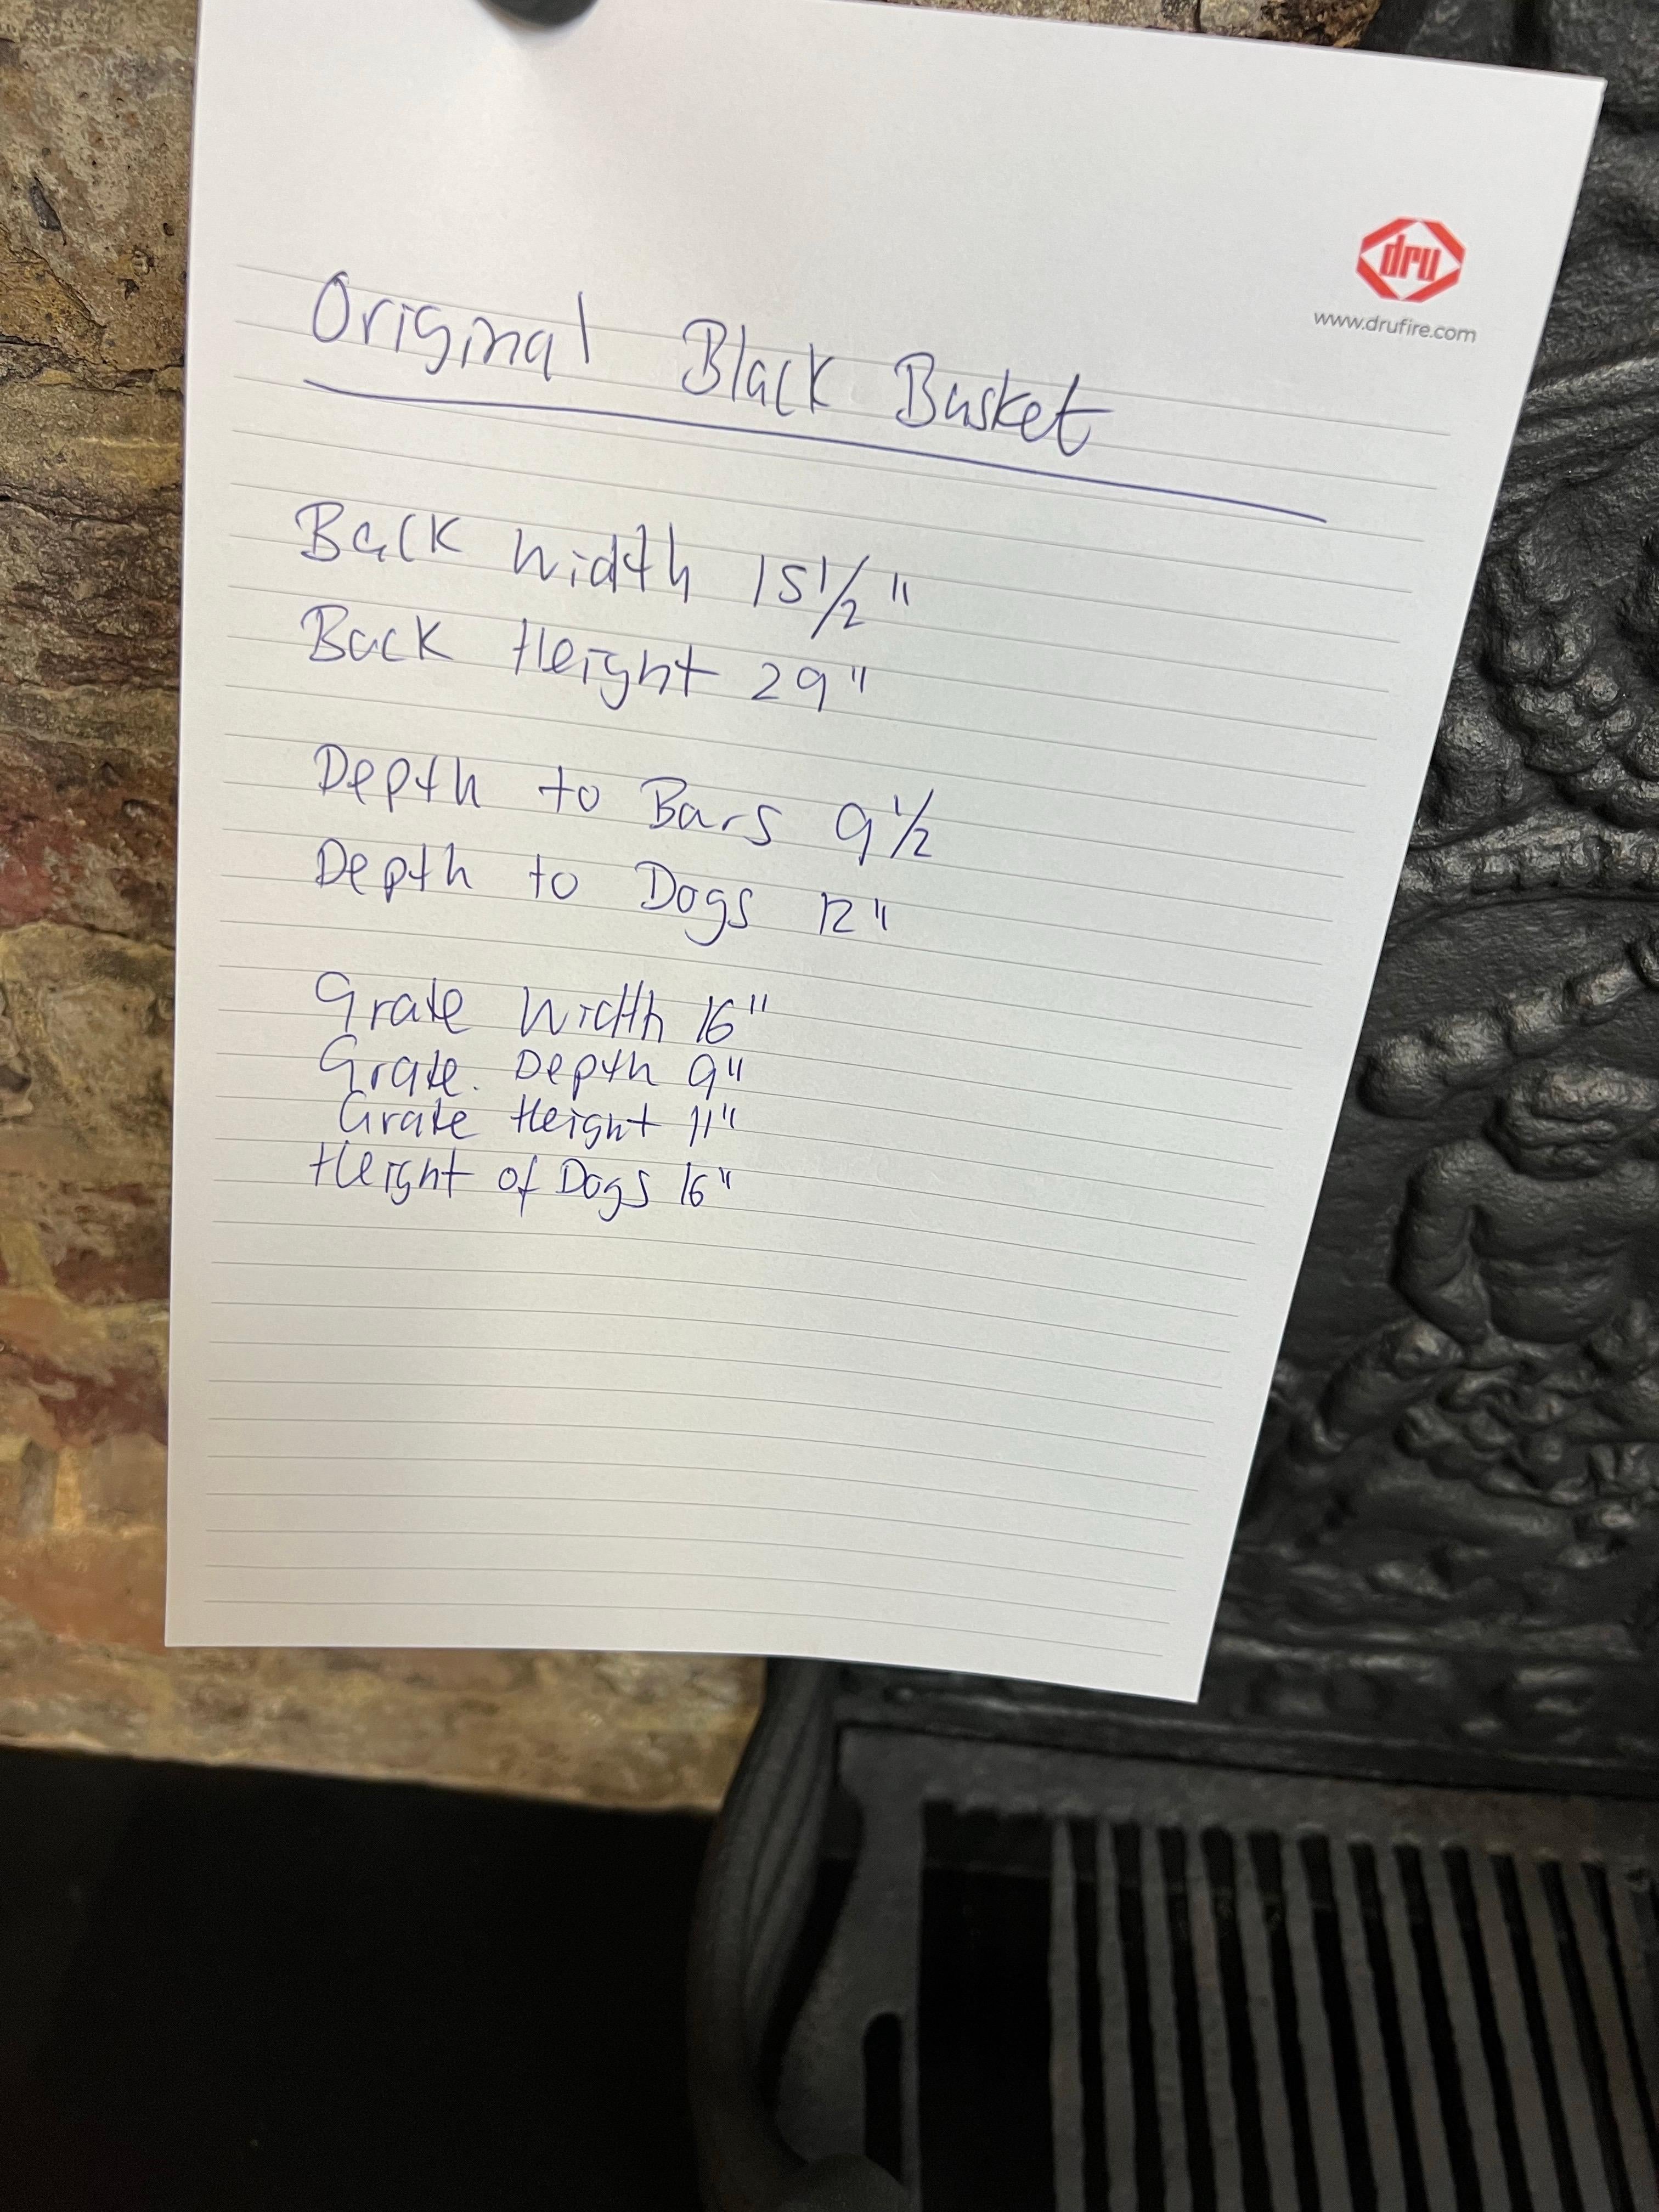 dru
www.drufire.com
Original Black Basket
Back Width 15 1/2"
Back Height 29"
Depth to Bars 9 1/2
Depth to Dogs 12"
Grate Width 16"
Grate. Depth 9"
Grate Height 11"
Height of Dogs 16"